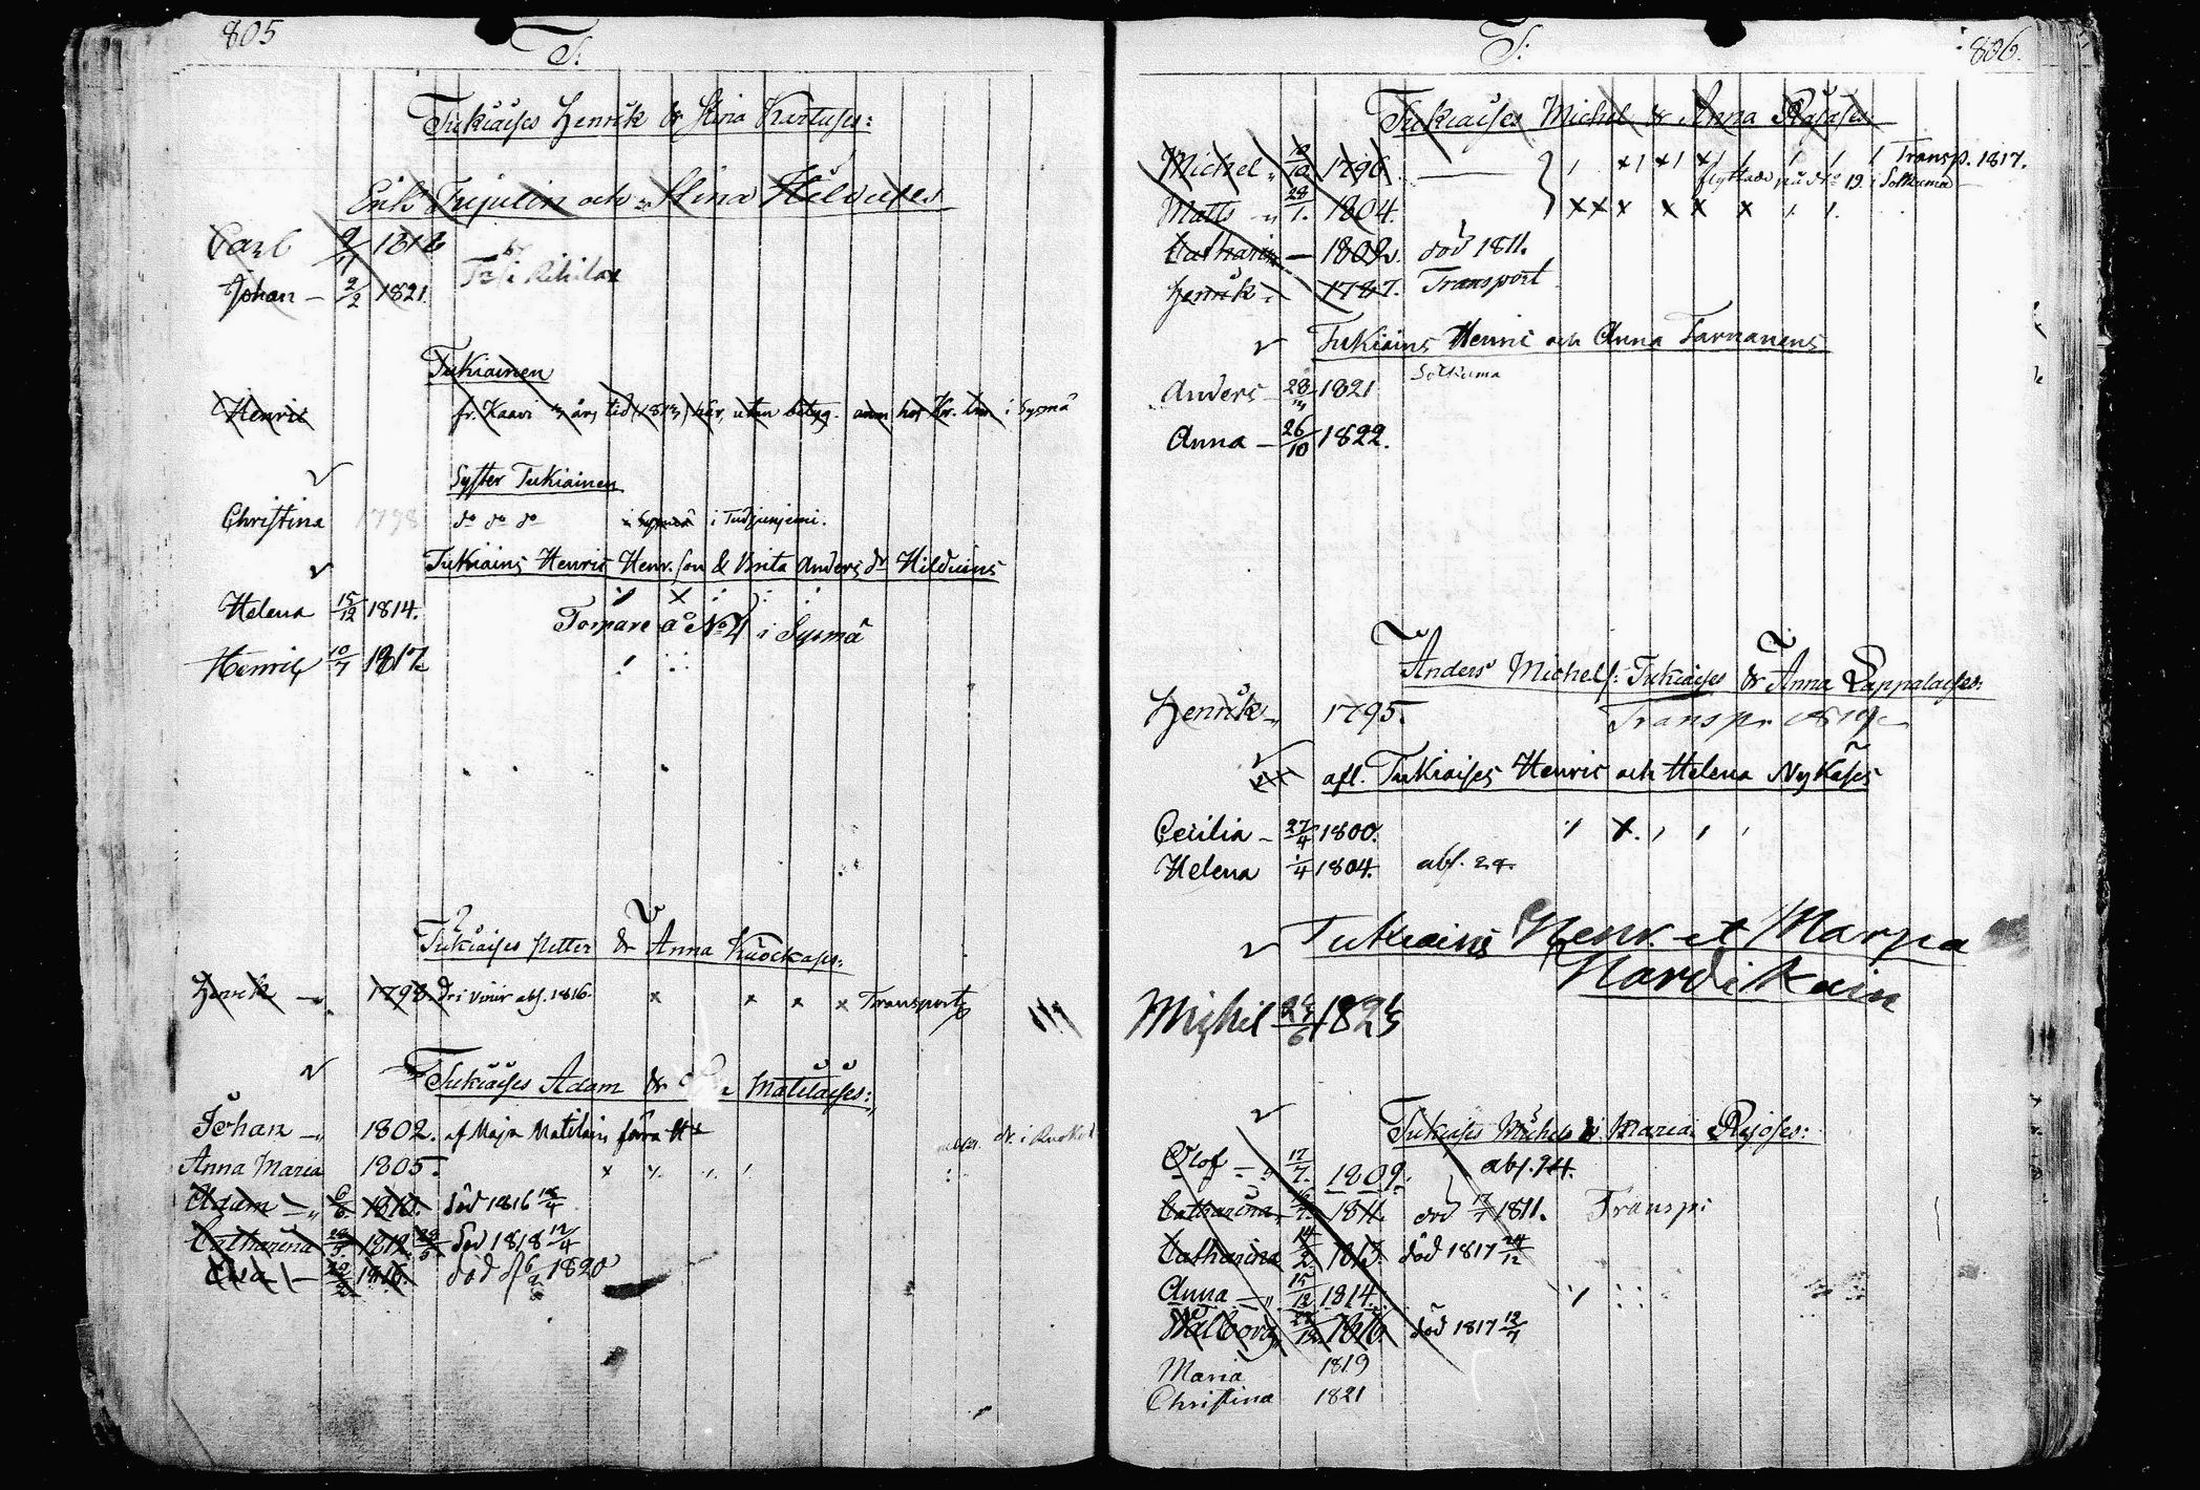 805
T:
Tukiaises Henrik & Stina Kartuses:
Erik Tujulin och Stina Hilduses
Carl 9/11 1818
Johan – 2/2 1821.
Tukiainen
Henric fr. Kaavi 3 års tid (1813) här, utan betyg. i Sysmä
Syster Tukiainen
Christina 1798 do do do i Sysmä i Tudjunjemi.
Tukiains Henric Henr. son & Brita Anders dr Hilduins
Helena 15/12 1814.
Torpare å No 4 i Sysmä
Henric 10/7 1817
Tukiaises Petter & Anna Kuockases:
Henrik – 1798. abs. 1816. x x x x Transport
Tukiaises Adam & Matilaises:
Johan – 1802. af Maja Matilain förra H
Anna Maria 1805.
Adam – 6/6 1810. död 1816 18/4
Catharina 28/5 1812. död 1818 12/4
Eva – 22/2 1816. död 1820
T:
806.
Tukiaises Michel & Anna Räsäses
Michel 10/10 1796. Transp. 1817.
flyttade på No 19 i Solkuma
Matts 28/1. 1804.
Catharina – 1802. död 1811.
Henrik 1787. Transport
Tukiains Henric och Anna Tarnanens
Solkuma
Anders 28/3 1821
Anna – 26/10 1822.
Anders Michels: Tukiaises & Anna Lappalaises:
Henrik 1795. Transp. 1819
afl. Tukiaises Henric och Helena Nykäses
Cecilia – 27/4 1800.
Helena 1/4 1804. abs. 24.
Tukiains Henr. et Marga
Hardikain
Mighil 1823
Tukiaises Michels & Maria Rejoses:
Olof 17/7. 1809. abs. 24.
Catharina 1811. död 17/7 1811. Transp:
Catharina 14/2. 1813. död 1817 24/12
Anna 15/12 1814.
Walborg 1816. död 1817 12/7
Maria 1819
Christina 1821